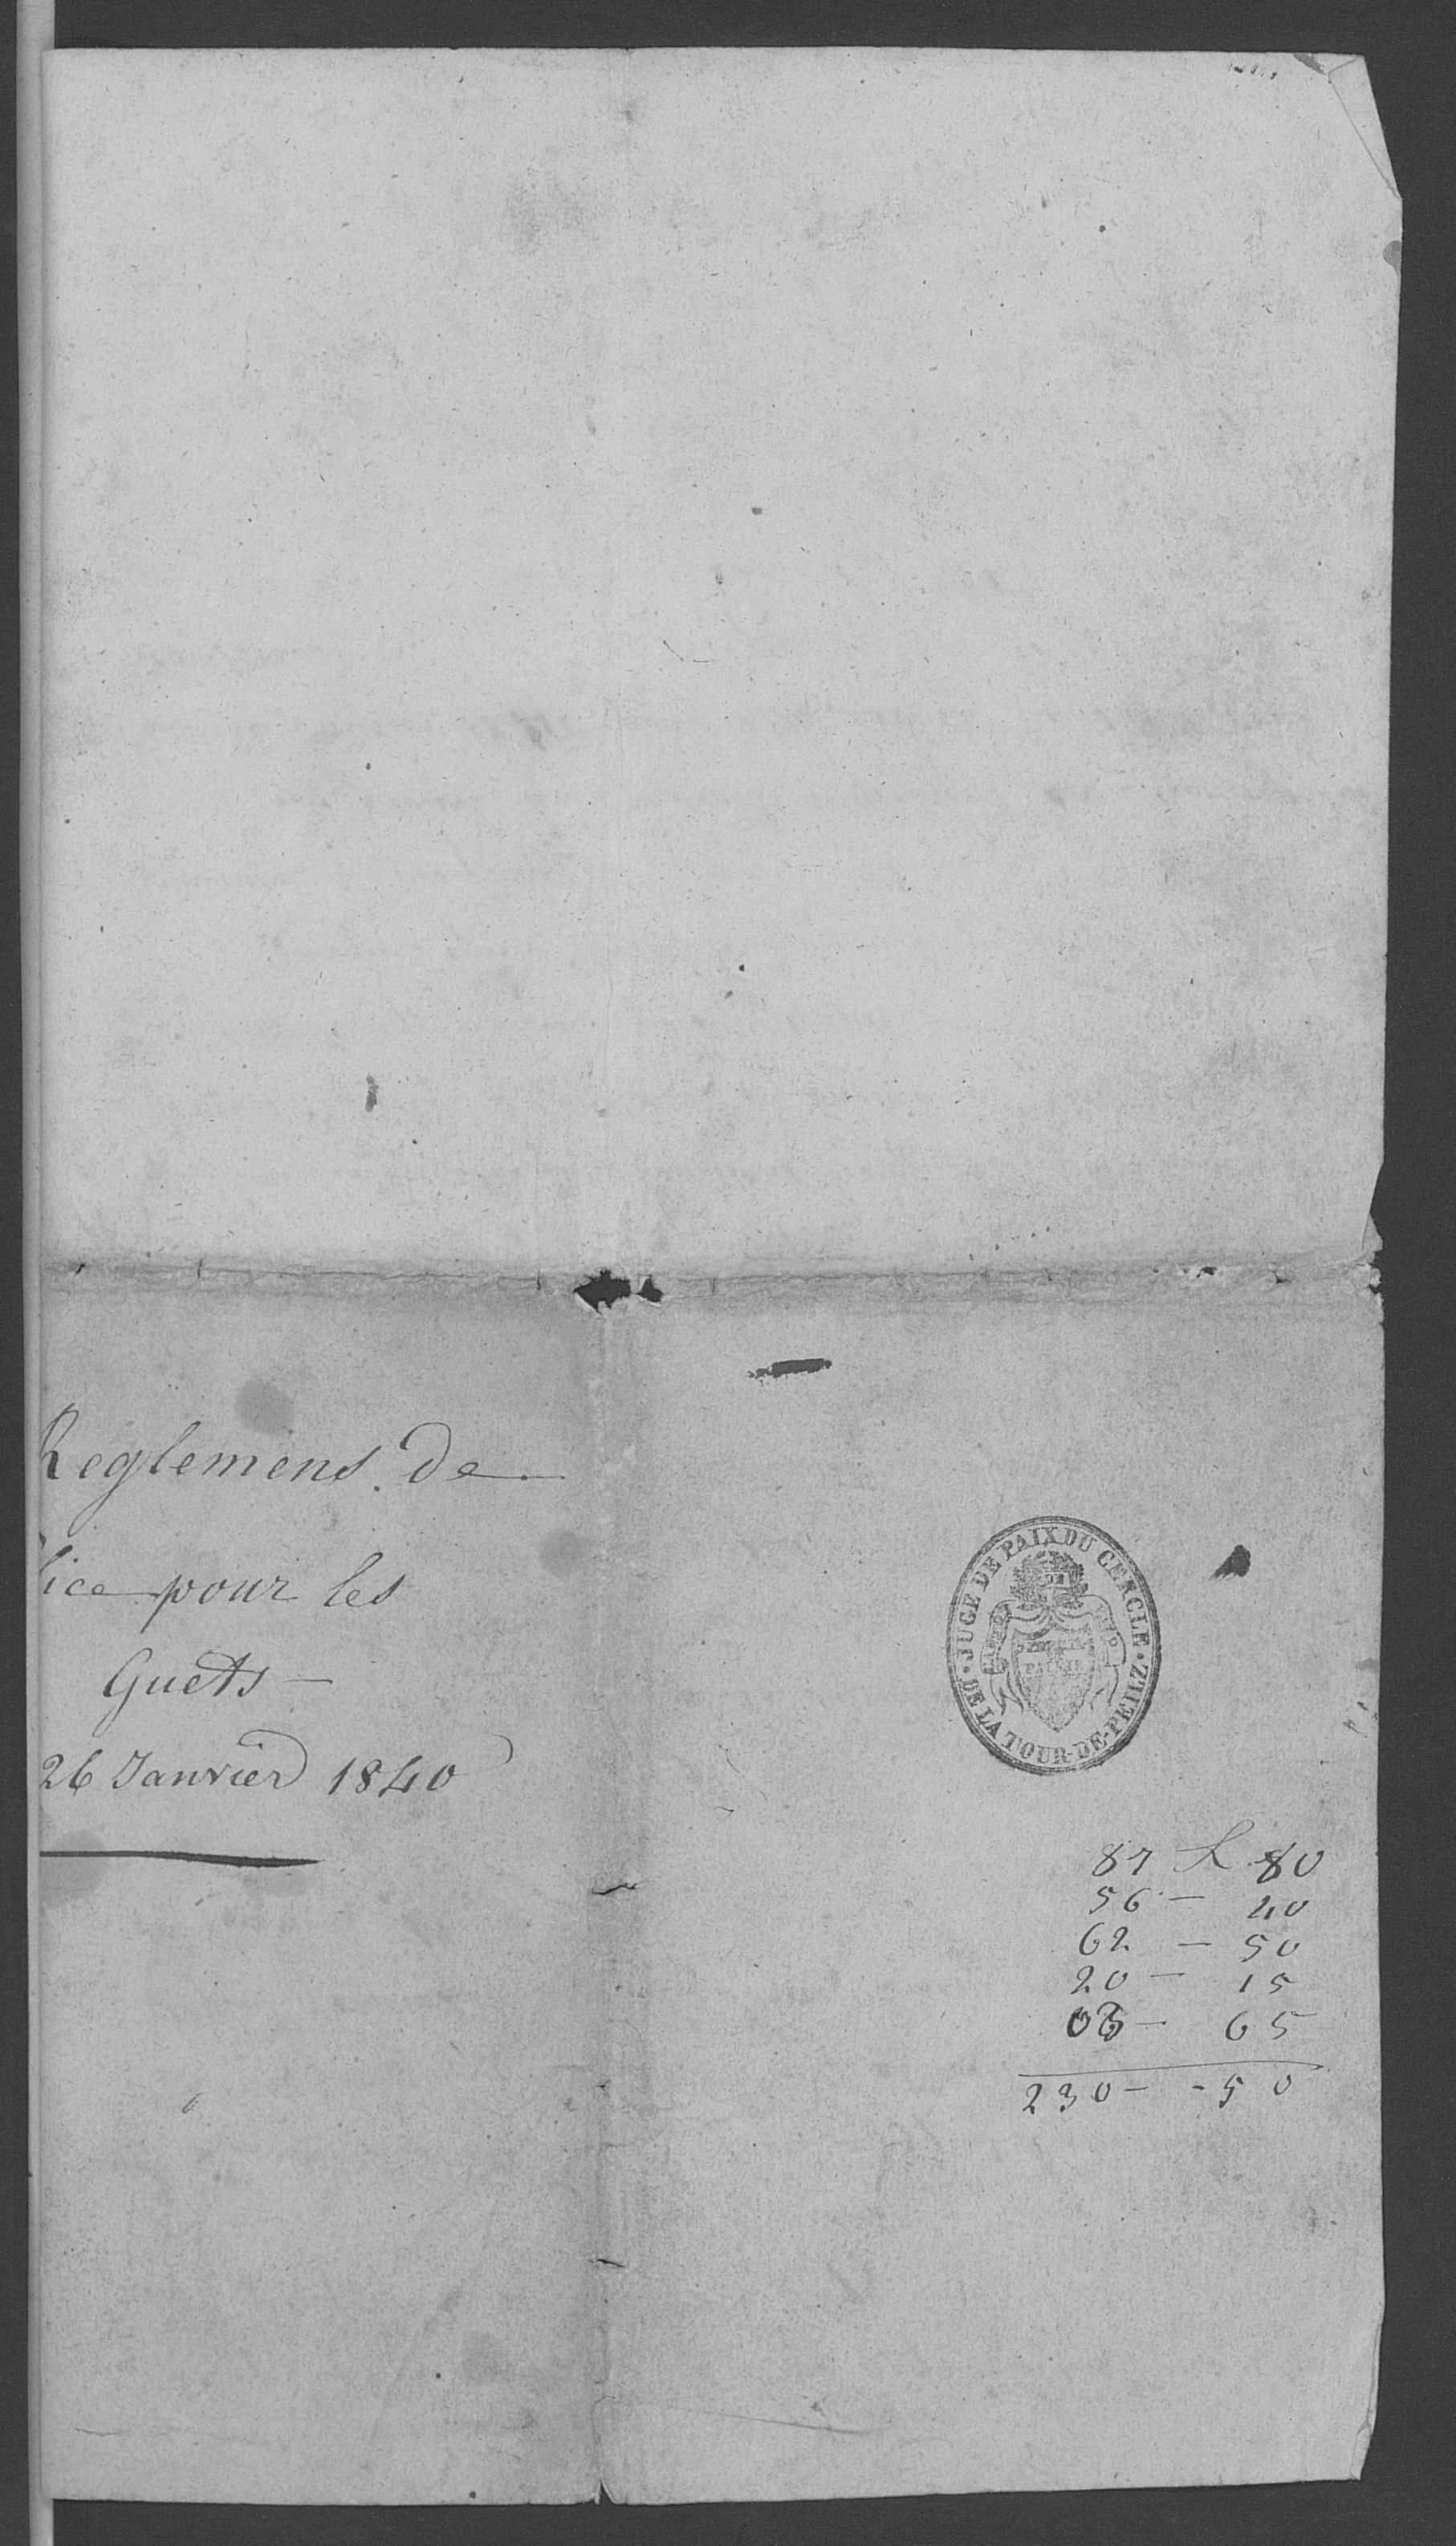 Reglemens de
lice pour les
Guets —
26 Janvier 1840
JUGE DE PAIX DU CERCLE
DE LA TOUR-DE-PEILZ
LIBERTÉ
PATRIE
87 L 80
56 — 40
62 — 50
20 — 15
03 — 65
230 — - 50